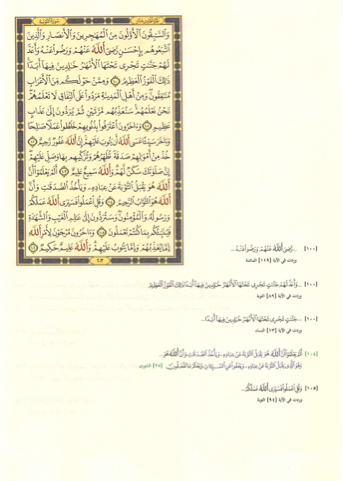 سُورَةُ التَّوْبَةِ
وَٱلسَّٰبِقُونَ ٱلْأَوَّلُونَ مِنَ ٱلْمُهَٰجِرِينَ وَٱلْأَنصَارِ وَٱلَّذِينَ
ٱتَّبَعُوهُم بِإِحْسَٰنٍ رَّضِىَ ٱللَّهُ عَنْهُمْ وَرَضُوا۟ عَنْهُ وَأَعَدَّ
لَهُمْ جَنَّٰتٍ تَجْرِى تَحْتَهَا ٱلْأَنْهَٰرُ خَٰلِدِينَ فِيهَآ أَبَدًا
ذَٰلِكَ ٱلْفَوْزُ ٱلْعَظِيمُ ١٠٠ وَمِمَّنْ حَوْلَكُم مِّنَ ٱلْأَعْرَابِ
مُنَٰفِقُونَ وَمِنْ أَهْلِ ٱلْمَدِينَةِ مَرَدُوا۟ عَلَى ٱلنِّفَاقِ لَا تَعْلَمُهُمْ
نَحْنُ نَعْلَمُهُمْ سَنُعَذِّبُهُم مَّرَّتَيْنِ ثُمَّ يُرَدُّونَ إِلَىٰ عَذَابٍ
عَظِيمٍ ١٠١ وَءَاخَرُونَ ٱعْتَرَفُوا۟ بِذُنُوبِهِمْ خَلَطُوا۟ عَمَلًا صَٰلِحًا
وَءَاخَرَ سَيِّئًا عَسَى ٱللَّهُ أَن يَتُوبَ عَلَيْهِمْ إِنَّ ٱللَّهَ غَفُورٌ رَّحِيمٌ ١٠٢
خُذْ مِنْ أَمْوَٰلِهِمْ صَدَقَةً تُطَهِّرُهُمْ وَتُزَكِّيهِم بِهَا وَصَلِّ عَلَيْهِمْ
إِنَّ صَلَوٰتَكَ سَكَنٌ لَّهُمْ وَٱللَّهُ سَمِيعٌ عَلِيمٌ ١٠٣ أَلَمْ يَعْلَمُوٓا۟ أَنَّ
ٱللَّهَ هُوَ يَقْبَلُ ٱلتَّوْبَةَ عَنْ عِبَادِهِۦ وَيَأْخُذُ ٱلصَّدَقَٰتِ وَأَنَّ
ٱللَّهَ هُوَ ٱلتَّوَّابُ ٱلرَّحِيمُ ١٠٤ وَقُلِ ٱعْمَلُوا۟ فَسَيَرَى ٱللَّهُ عَمَلَكُمْ
وَرَسُولُهُۥ وَٱلْمُؤْمِنُونَ وَسَتُرَدُّونَ إِلَىٰ عَٰلِمِ ٱلْغَيْبِ وَٱلشَّهَٰدَةِ
فَيُنَبِّئُكُم بِمَا كُنتُمْ تَعْمَلُونَ ١٠٥ وَءَاخَرُونَ مُرْجَوْنَ لِأَمْرِ ٱللَّهِ
إِمَّا يُعَذِّبُهُمْ وَإِمَّا يَتُوبُ عَلَيْهِمْ وَٱللَّهُ عَلِيمٌ حَكِيمٌ ١٠٦
٢٠٣
[١٠٠] ...رَّضِىَ ٱللَّهُ عَنْهُمْ وَرَضُوا۟ عَنْهُ...
وردت في الآية [١١٩] المائدة
[١٠٠] ...وَأَعَدَّ لَهُمْ جَنَّٰتٍ تَجْرِى تَحْتَهَا ٱلْأَنْهَٰرُ خَٰلِدِينَ فِيهَآ أَبَدًا ذَٰلِكَ ٱلْفَوْزُ ٱلْعَظِيمُ
وردت في الآية [٨٩] التوبة
[١٠٠] ...جَنَّٰتٍ تَجْرِى تَحْتَهَا ٱلْأَنْهَٰرُ خَٰلِدِينَ فِيهَآ أَبَدًا...
وردت في الآية [١٣] النساء
[١٠٤] أَلَمْ يَعْلَمُوٓا۟ أَنَّ ٱللَّهَ هُوَ يَقْبَلُ ٱلتَّوْبَةَ عَنْ عِبَادِهِۦ وَيَأْخُذُ ٱلصَّدَقَٰتِ وَأَنَّ ٱللَّهَ هُوَ...
وَهُوَ ٱلَّذِى يَقْبَلُ ٱلتَّوْبَةَ عَنْ عِبَادِهِۦ وَيَعْفُوا۟ عَنِ ٱلسَّيِّـَٔاتِ وَيَعْلَمُ مَا تَفْعَلُونَ [٢٥] الشورى
[١٠٥] وَقُلِ ٱعْمَلُوا۟ فَسَيَرَى ٱللَّهُ عَمَلَكُمْ...
وردت في الآية [٩٤] التوبة